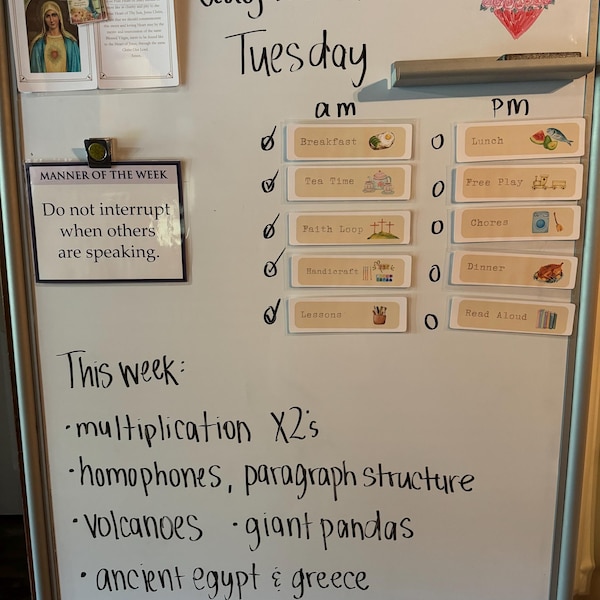 Tuesday
am pm
Breakfast Lunch
Tea Time Free Play
Faith Loop Chores
Handicraft Dinner
Lessons Read Aloud
MANNER OF THE WEEK
Do not interrupt
when others
are speaking.
This week:
·multiplication X2's
·homophones, paragraph structure
·volcanoes ·giant pandas
·ancient egypt & greece